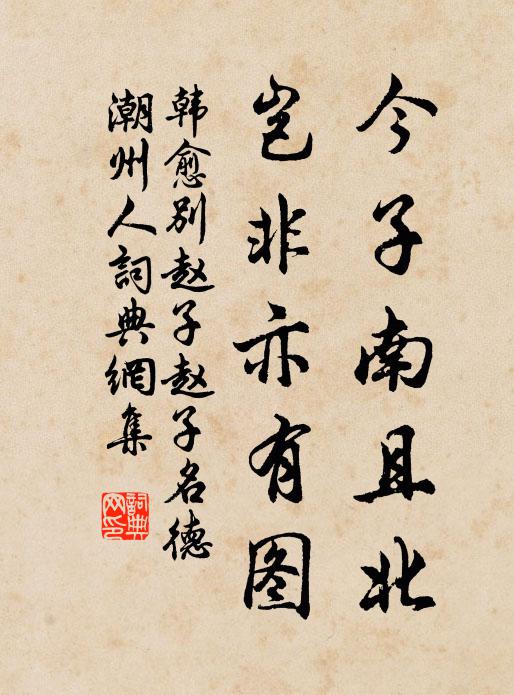 今子南且北
岂非亦有图
韩愈别赵子赵子名德
潮州人詞典網集
詞典
网印